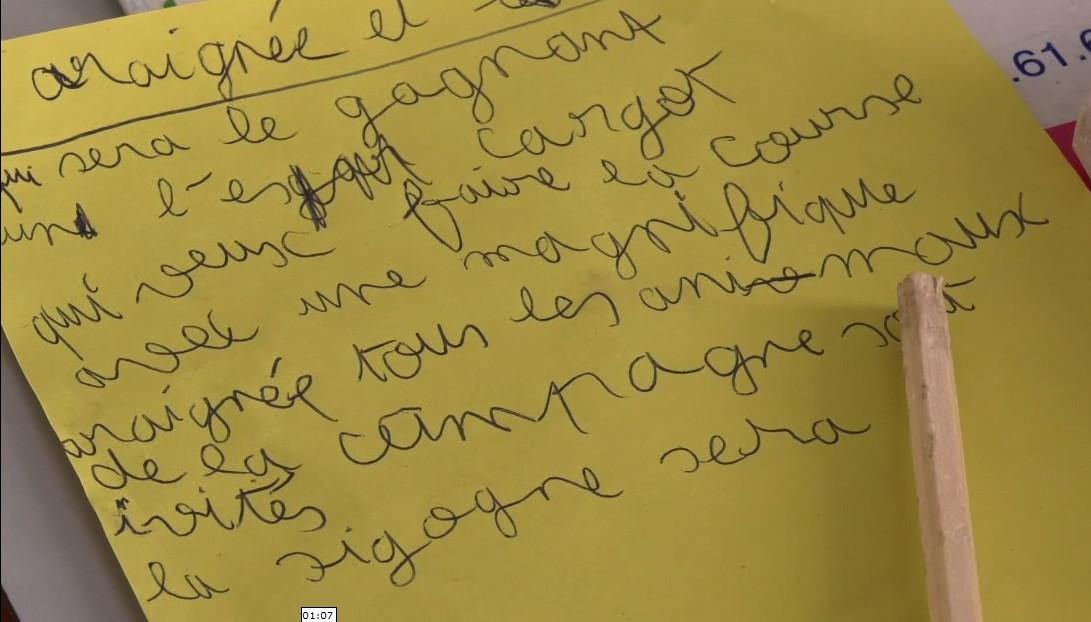 araignée et
.61.6
qui sera le gagnant
un l'es cargot
qui veux faire la course
avec une magnifique
araignée tous les animaux
de la campagne
invités
la sigogne sera
01:07